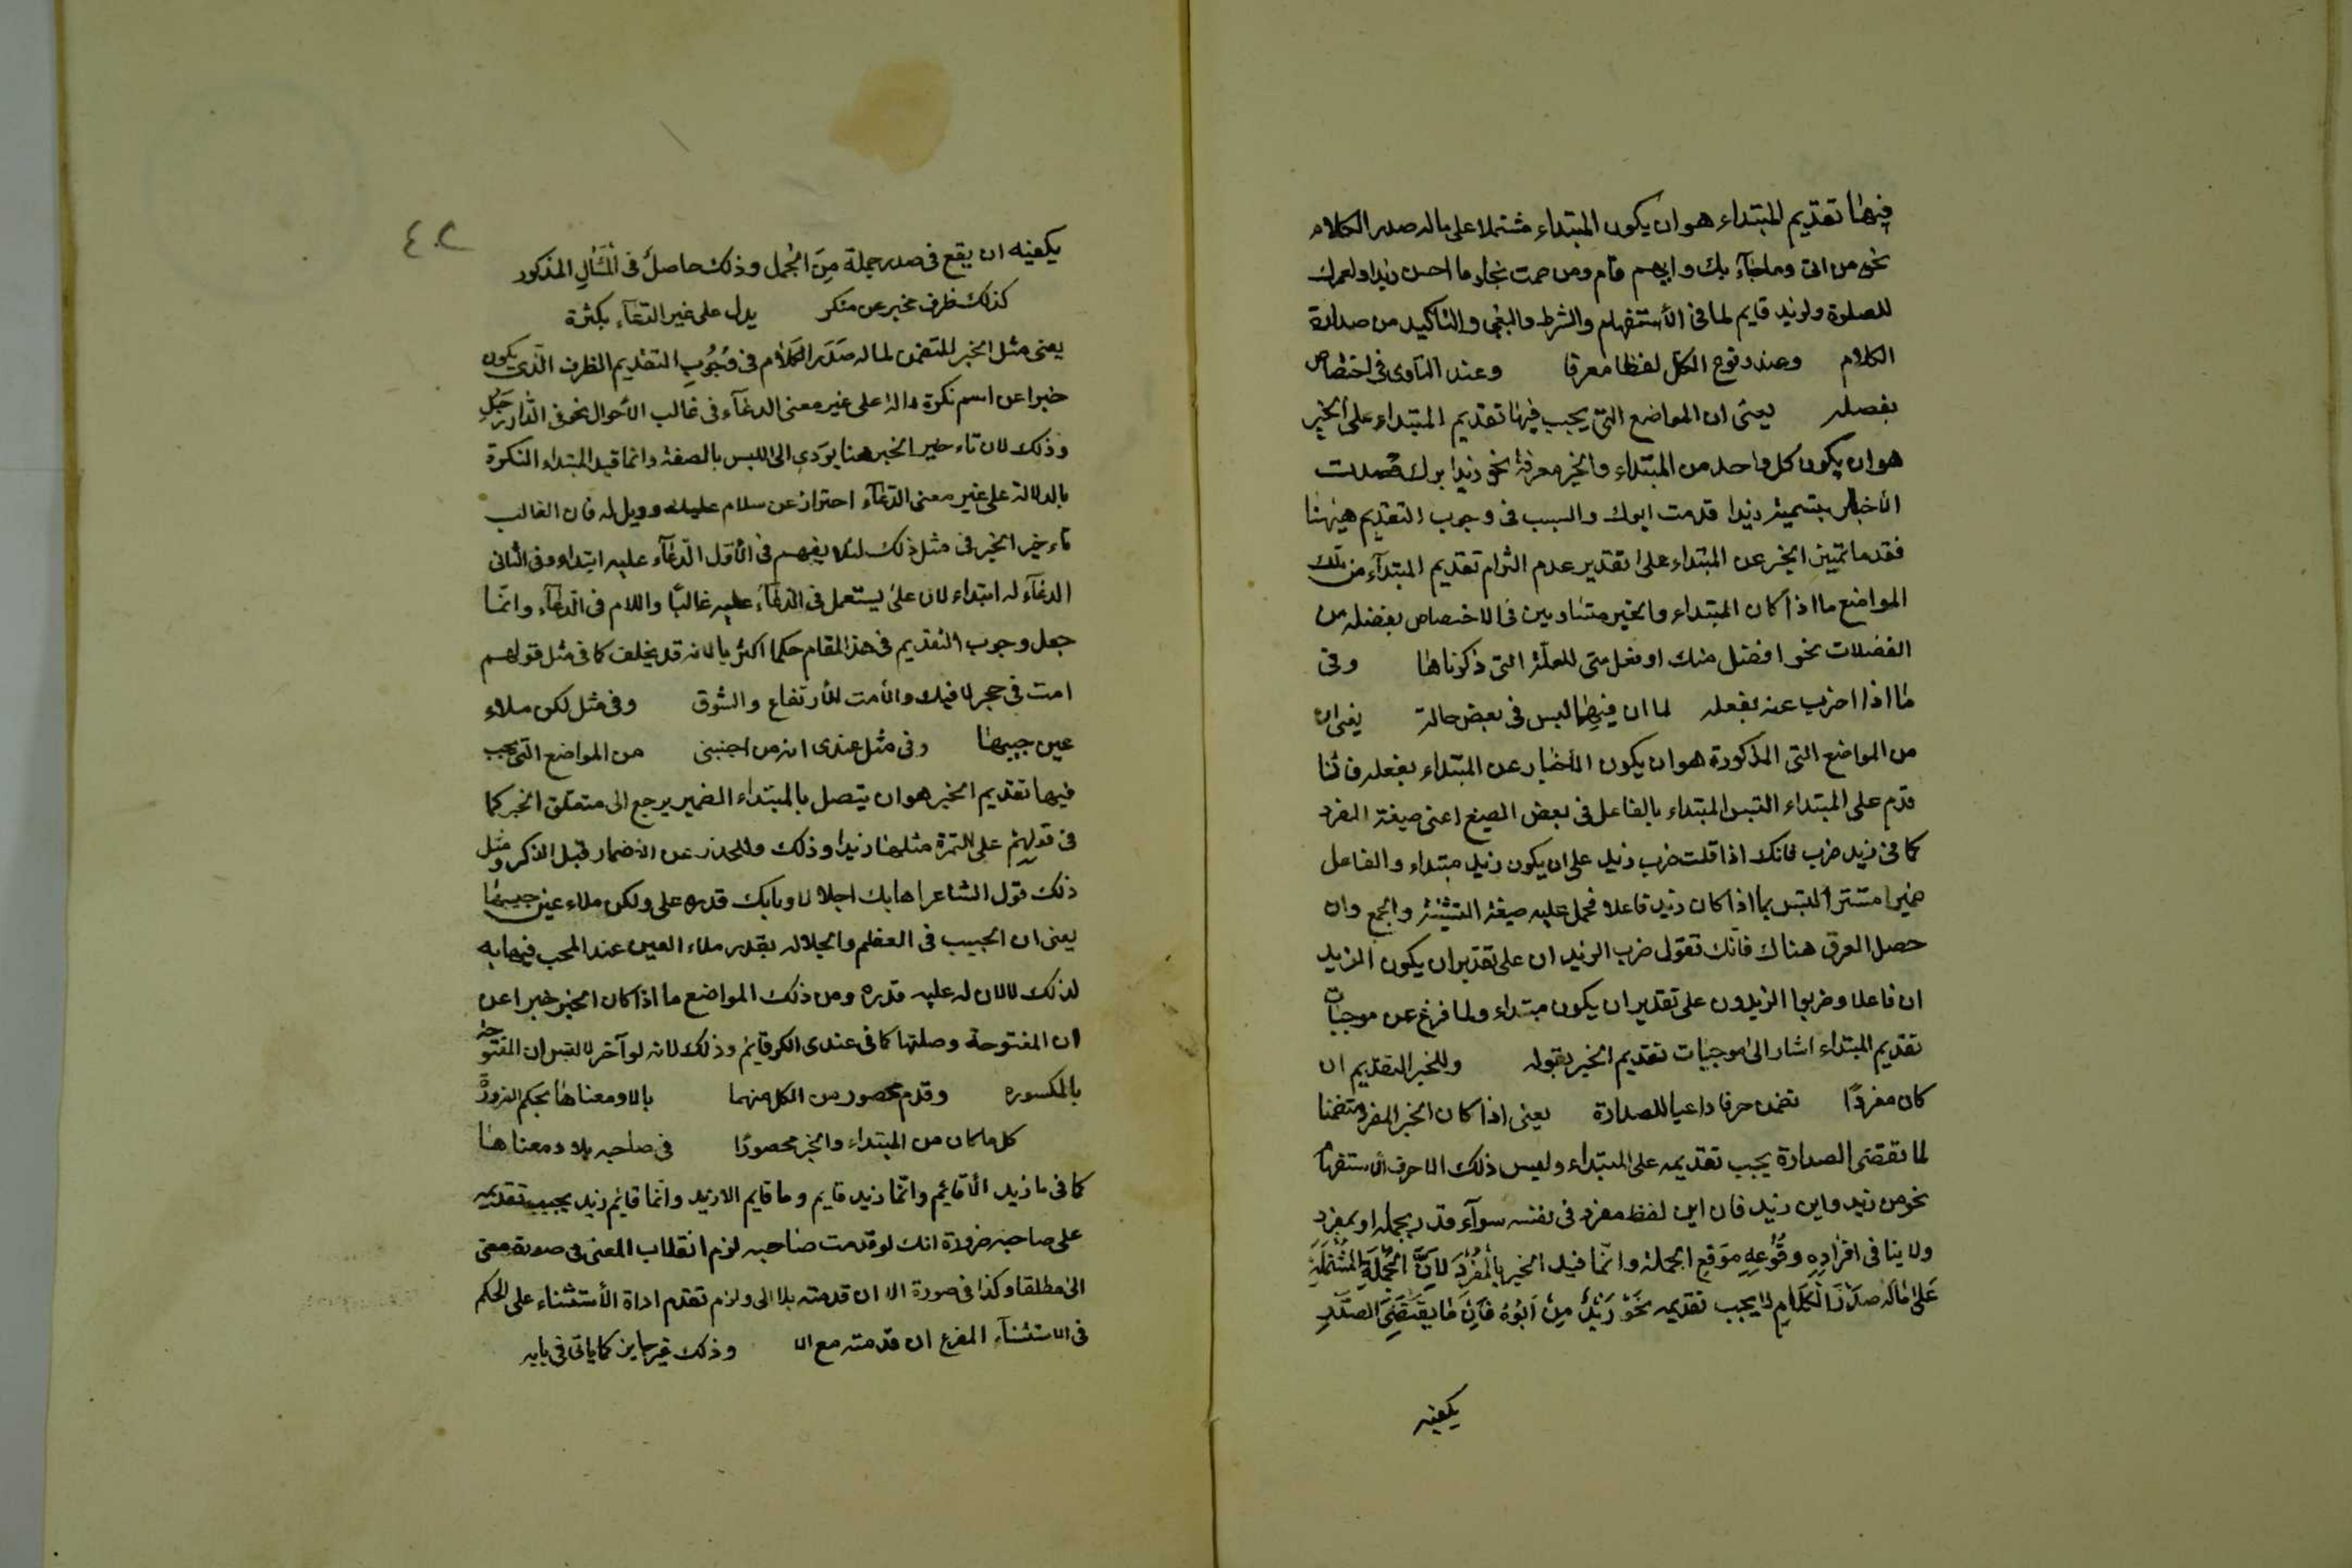 فيها تقديم المبتداء هو ان يكون المبتداء مشتملا على ماله صدر الكلام
نحو من انت وما جاء بك وايهم قام ومن صمت نجا وما احسن زيدا ولعمرك
للصلوة ولزيد قايم لما فى الأستفهام والشرط والتعجب والتاكيد من صدارة
الكلام وعند وقوع الكل لفظا معرفا وعند التساوى فى اختصاص
بفصله يعنى ان المواضع التى يجب فيها تقديم المبتداء على الخبر
هو ان يكون كل واحد من المبتداء والخبر معرفة نحو زيد ابوك قصدت
الأخبار بتسمية زيدا قدمت ابوك والسبب فى وجوب التقديم هيهنا
فقد ما تميز الخبر عن المبتداء على تقدير عدم التزام تقديم المبتدآء من تلك
المواضع ما اذا كان المبتداء والخبر متساويين فى الاختصاص بفضله من
الفضلات نحو افضل منك افضل منى للعلة التى ذكرناها وفى
ما اذا اخرب عنه بفعله لما ان فيهما لبس فى بعض حالة يعنى ان
من المواضع التى المذكورة هو ان يكون الأخبار عن المبتداء بفعله فانما
قدم على المبتداء التبس المبتداء بالفاعل فى بعض الصيغ اعنى صيغة المفرد
كما فى زيد ضرب فانك اذا قلت ضرب زيد على ان يكون زيد مبتداء والفاعل
ضميرا مستترا التبس بما اذا كان زيد فاعلا فحمل عليه صيغة التثنية والجمع وان
حصل الفرق هناك فانك تقول ضرب الزيدان على تقدير ان يكون الزيد
ان فاعلا وضربوا الزيدون على تقدير ان يكون مبتداء ولما فرغ عن موجبات
تقديم المبتداء اشار الى موجبات تقديم الخبر بقوله وللخبر التقديم ان
كان مفردًا تضمن حرفا داعيا للصدارة يعنى اذا كان الخبر المفرد متضمنا
لما تقتضى الصدارة يجب تقديمه على المبتداء وليس ذلك الا حرف الاستفهام
نحو من زيد واين زيد فان اين لفظ مفرد فى نفسه سوآء قدر بجملة او بمفرد
ولا ينا فى افراده وقوعه موقع الجملة وانما قيد الخبر بالمفرد لان الجملة المشتملة
على ماله صدر الكلام لا يجب تقديمه نحو زيد من ابوه فان ما يقتضى الصدر
يكفيه
٤٠٢
يكفيه ان يقع فى صدر جملة من الجمل وذلك حاصل فى المثال المذكور
كذلك ظرف مخبر عن منكر يدل على غير الدعآء بكثرة
يعنى مثل الخبر المتضمن لما له صدر الكلام فى وجوب التقديم الظرف الذى يكون
خبرا عن اسم نكرة دالة على غير معنى الدعآء فى غالب الأحوال نحو فى الدار رجل
وذلك لان تاء خير الخبر هنا يودى الى اللبس بالصفة وانما قيد المبتداء النكرة
بالدلالة على غير معنى الدعآء احتراز عن سلام عليك وويل له فان الغالب
تاء خير الخبر فى مثل ذلك لئلا يفهم فى الأول الدعآء عليه ابتداء وفى الثانى
الدعآء له ابتداء لان على يستعمل فى الدعآء عليه غالبا واللام فى الدعآء وانما
جعل وجوب التقديم فى هذا المقام حكما اكثريا لانه قد يخلف كما فى مثل قولهم
امت فى حجر لا فيك والأمت الأرتفاع والشوق وفى مثل لكن ملاء
عين حبيبها وفى مثل عندى انه من اجنبى من المواضع التى يجب
فيها تقديم الخبر هو ان يتصل بالمبتداء الضمير يرجع الى متعلق الخبر كما
فى قولهم على التمرة مثلها زيدا وذلك والحذر عن الاضمار قبل الذكر ومثل
ذلك قول الشاعر اهابك اجلالا وما بك قدره على ولكن ملاء عين حبيبها
يعنى ان الحبيب فى العظم والجلالة بقدر ملاء العين عند المحب فيهابه
لذلك لا لان له عليه قدره ومن ذلك المواضع ما اذا كان الخبر خبرا عن
ان المفتوحة وصلتها كما فى عندى انك قايم وذلك لانه لو آخر لالتبس ان المفتوحة
بالمكسوره وقدم محصور من الكل منهما بالا ومعناها بحكم الضرورة
كل ما كان من المبتداء والخبر محصورًا فى صاحبه بلا ومعناها
كما فى ما زيد الأ قائم وانما زيد قايم وما قايم الا زيد وانما قائم زيد يجب تقديمه
على صاحبه ضرورة انك لو قدمت صاحبه لزم انقلاب المعنى فى صورة معنى
الى مطلقا وكذا فى صورة الا ان قدمته بلا الى ولزم تقدم اداة الأستثناء على الحكم
فى الاستثنآء المفرغ ان قدمته مع الا وذلك غير جايز كما ياتى فى بابه